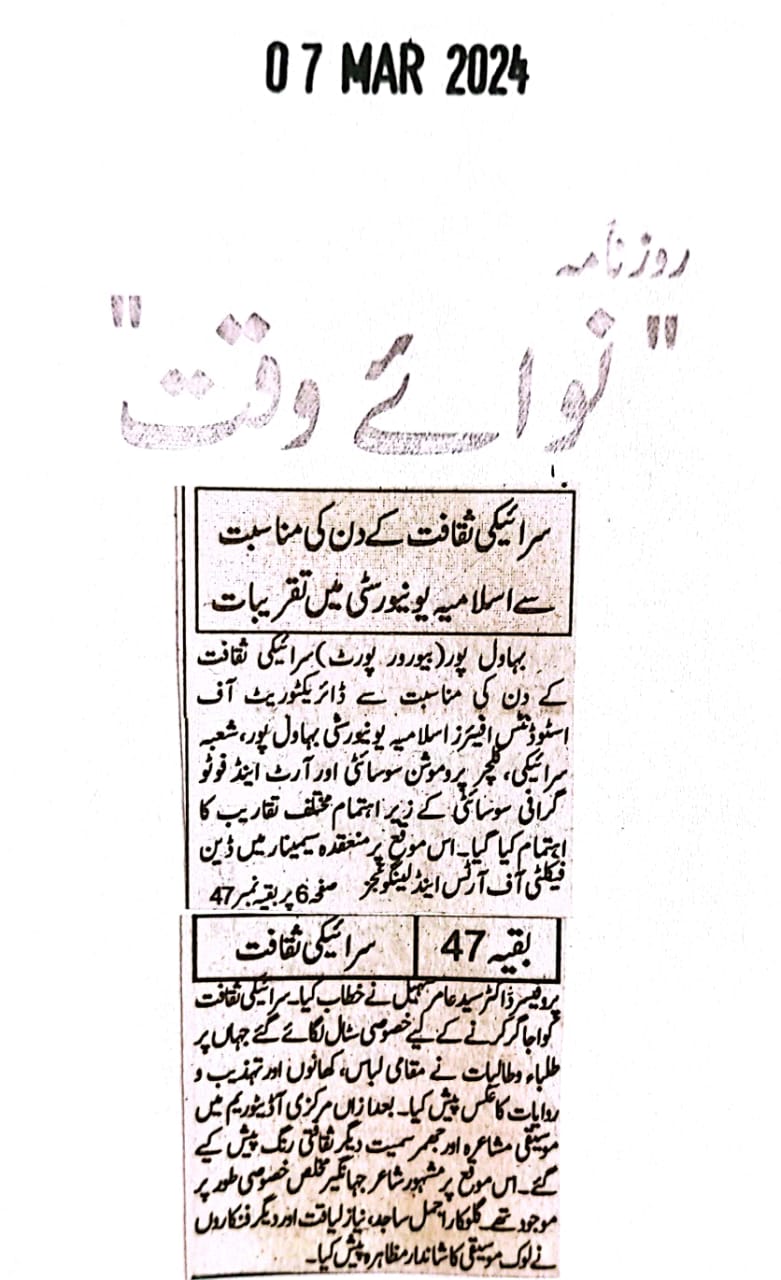 07 MAR 2024
روزنامہ
"نوائے وقت"
سرائیکی ثقافت کے دن کی مناسبت
سے اسلامیہ یونیورسٹی میں تقریبات
بہاول پور (بیورو رپورٹ) سرائیکی ثقافت
کے دن کی مناسبت سے ڈائریکٹوریٹ آف
اسٹوڈنٹس افیئرز اسلامیہ یونیورسٹی بہاول پور، شعبہ
سرائیکی، کلچر پروموشن سوسائٹی اور آرٹ اینڈ فوٹو
گرافی سوسائٹی کے زیر اہتمام مختلف تقاریب کا
اہتمام کیا گیا۔ اس موقع پر منعقدہ سیمینار میں ڈین
فیکلٹی آف آرٹس اینڈ لینگوئجز صفحہ 6 پر بقیہ نمبر 47
بقیہ 47 سرائیکی ثقافت
پروفیسر ڈاکٹر سید عامر سہیل نے خطاب کیا۔ سرائیکی ثقافت
کو اجاگر کرنے کے لیے خصوصی سٹال لگائے گئے جہاں پر
طلباء و طالبات نے مقامی لباس، کھانوں اور تہذیب و
روایات کا عکس پیش کیا۔ بعدازاں مرکزی آڈیٹوریم میں
موسیقی مشاعرہ اور جھمر سمیت دیگر ثقافتی رنگ پیش کیے
گئے۔ اس موقع پر مشہور شاعر جہانگیر مخلص خصوصی طور پر
موجود تھے۔ گلوکار اجمل ساجد، نیاز لیاقت اور دیگر فنکاروں
نے لوک موسیقی کا شاندار مظاہرہ پیش کیا۔